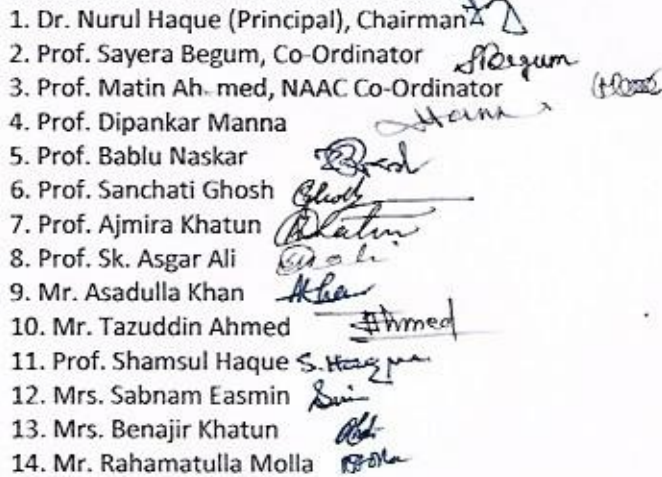 1. Dr. Nurul Haque (Principal), Chairman
2. Prof. Sayera Begum, Co-Ordinator SBegum
3. Prof. Matin Ah med, NAAC Co-Ordinator
4. Prof. Dipankar Manna Manna
5. Prof. Bablu Naskar
6. Prof. Sanchati Ghosh Ghosh
7. Prof. Ajmira Khatun Khatun
8. Prof. Sk. Asgar Ali
9. Mr. Asadulla Khan
10. Mr. Tazuddin Ahmed Ahmed
11. Prof. Shamsul Haque S. Haque
12. Mrs. Sabnam Easmin
13. Mrs. Benajir Khatun
14. Mr. Rahamatulla Molla